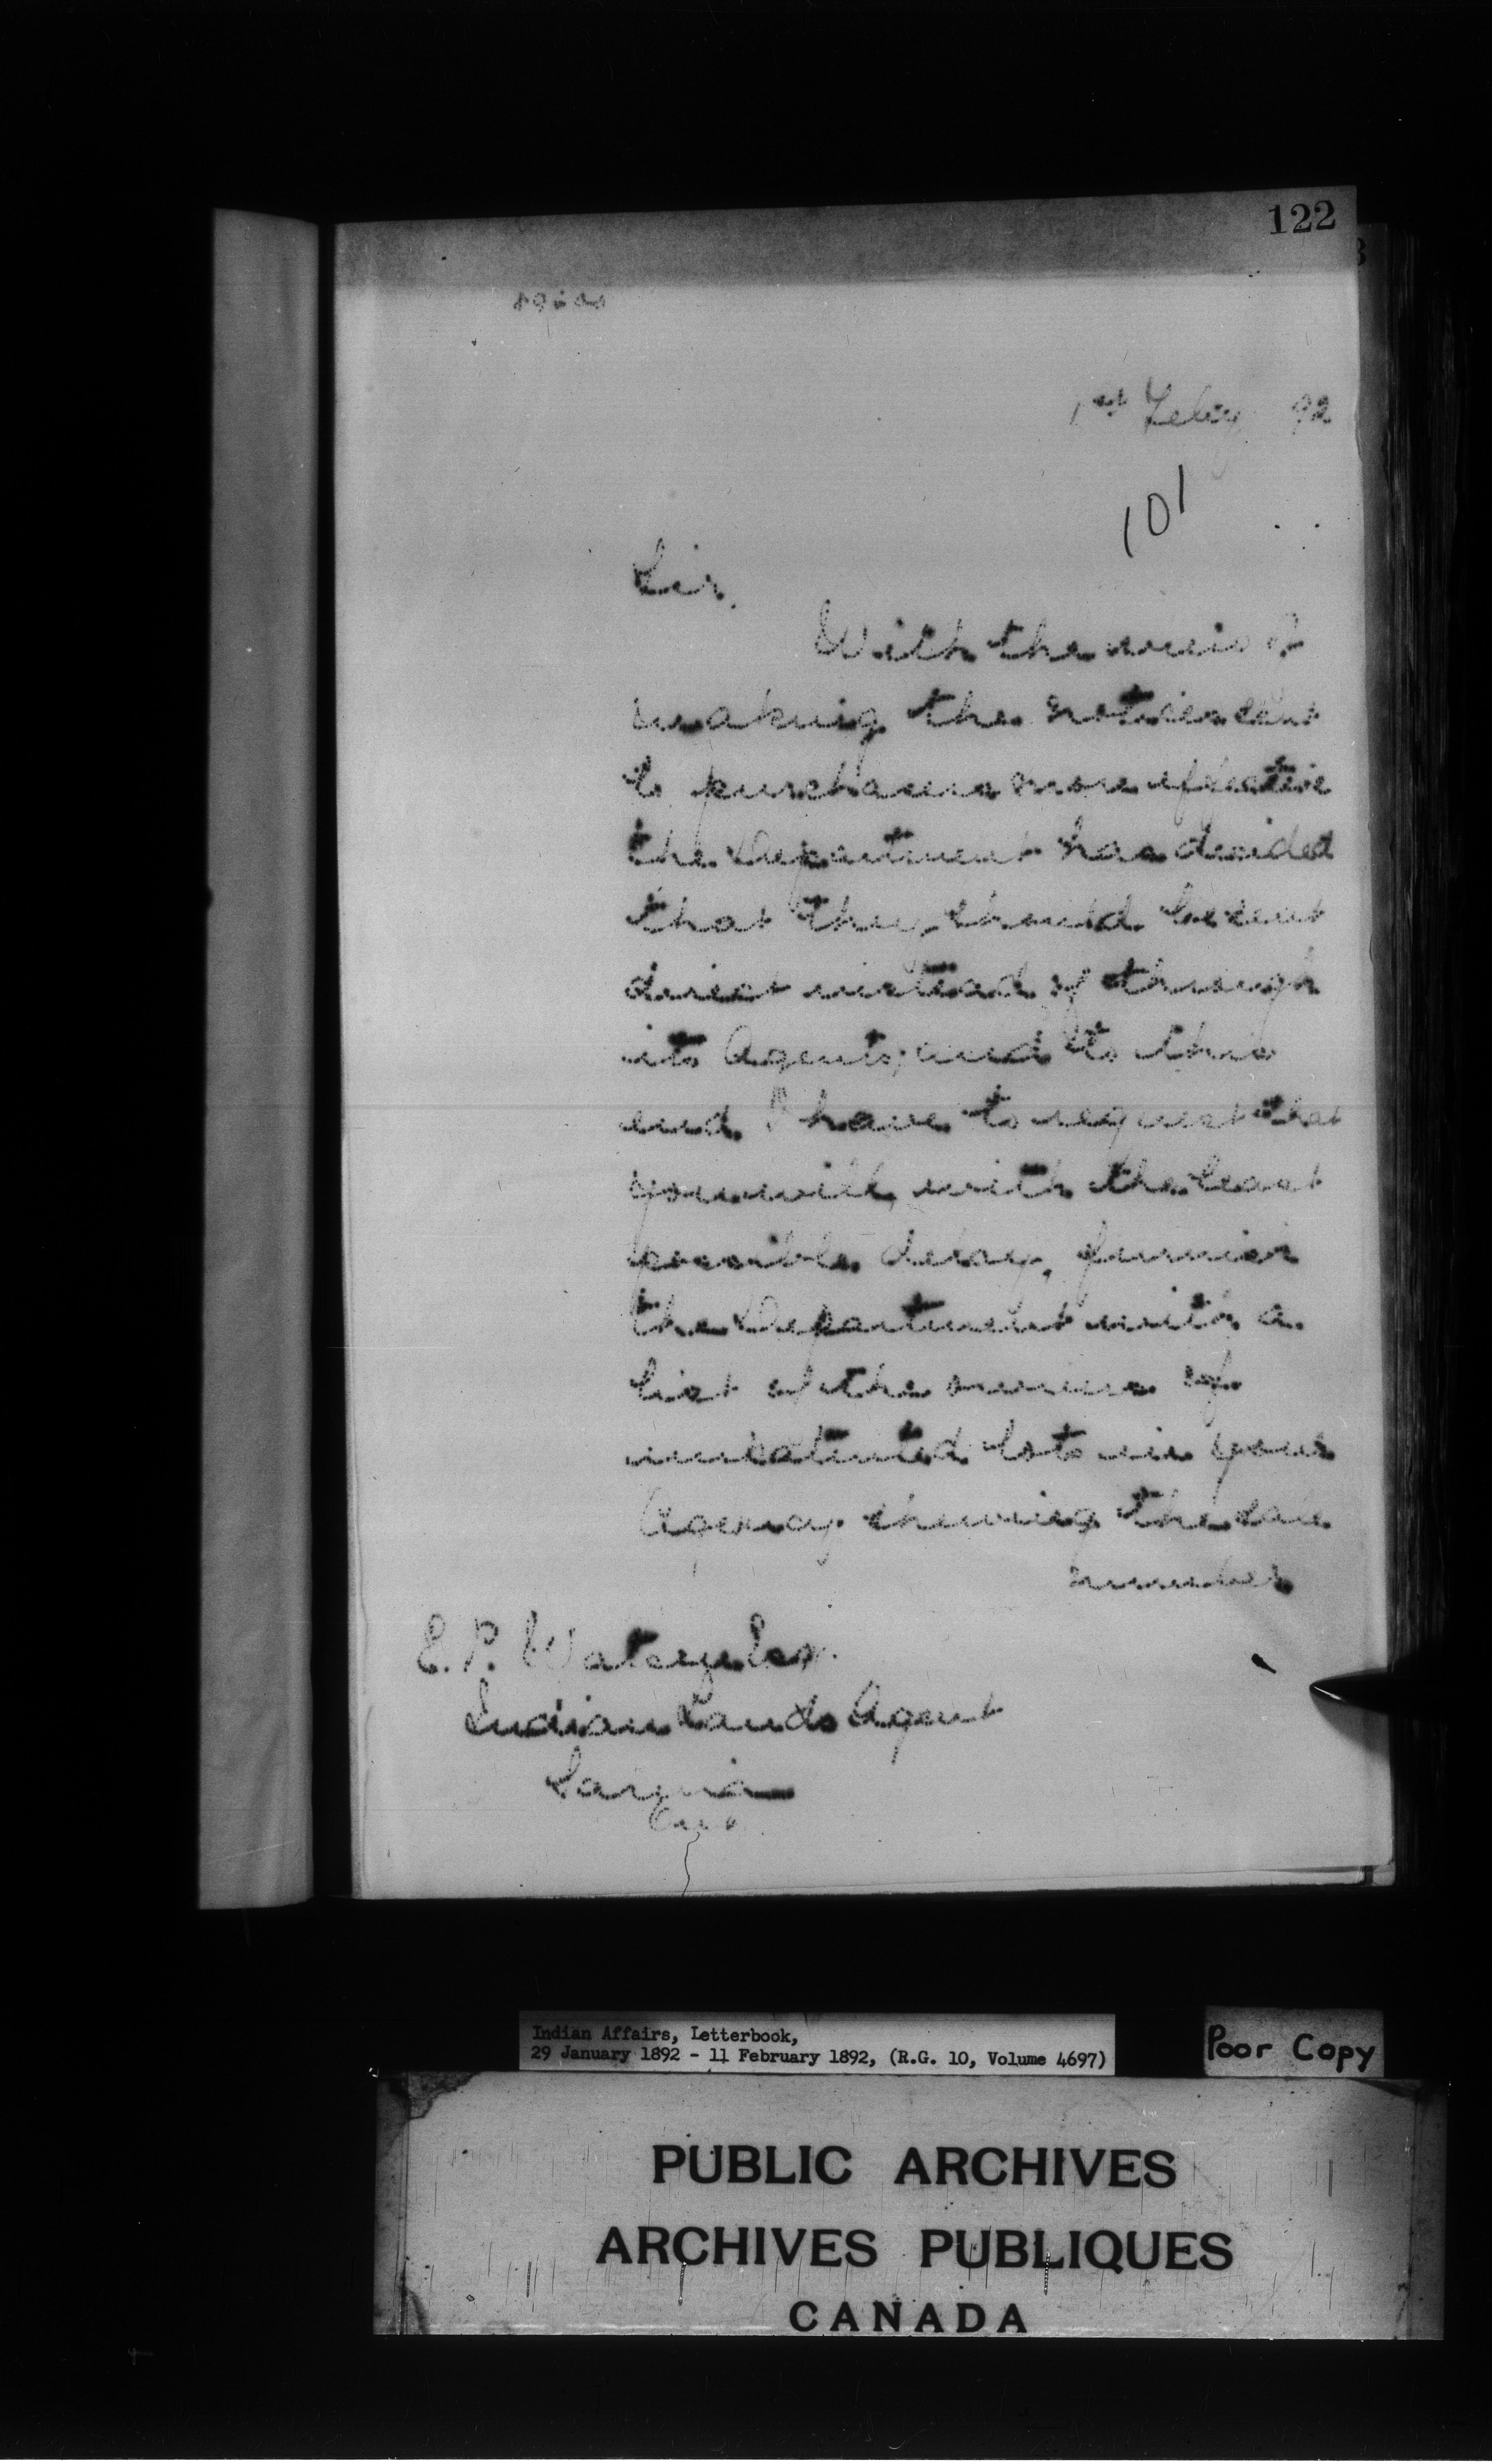 122
1st Feby 92
101
Sir,
With the view of
making the notices sent
to purchasers more effective
the Department has decided
that they should be sent
direct instead of through
its Agents; and to this
end I have to request that
you will, with the least
possible delay, furnish
the Department with a
list of the names of
unpatented lots in your
Agency shewing the sale
number
E. P. Watson Esq.
Indian Lands Agent
Sarnia
Ont.
Indian Affairs, Letterbook,
29 January 1892 - 11 February 1892, (R.G. 10, Volume 4697)
Poor Copy
PUBLIC ARCHIVES
ARCHIVES PUBLIQUES
CANADA